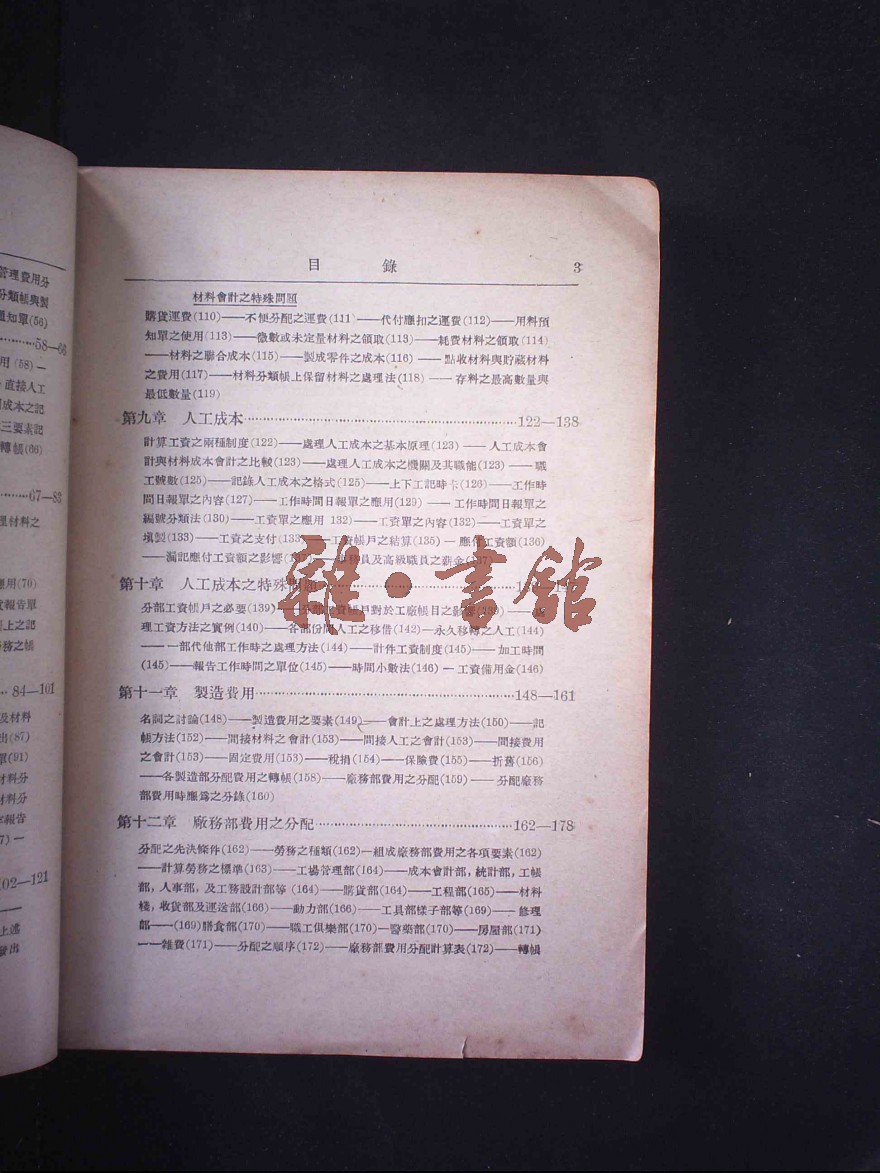 管理費用分
分類帳與製
知單(56)
58—66
用(58)—
直接人工
成本之記
三要素記
轉帳(66)
67—83
理材料之
應用(70)
報告單
上之記
務之帳
84—101
及材料
出(87)
單(91)
材料分
材料分
報告
7)—
02—121
上述
發出
目錄 3
材料會計之特殊問題
購貨運費(110)——不便分配之運費(111)——代付應扣之運費(112)——用料預
知單之使用(113)——微數或未定量材料之領取(113)——耗費材料之領取(114)
——材料之聯合成本(115)——製成零件之成本(116)——點收材料與貯藏材料
之費用(117)——材料分類帳上保留材料之處理法(118)——存料之最高數量與
最低數量(119)
第九章 人工成本……………………………………………………122—138
計算工資之兩種制度(122)——處理人工成本之基本原理(123)——人工成本會
計與材料成本會計之比較(123)——處理人工成本之機關及其職能(123)——職
工號數(125)——記錄人工成本之格式(125)——上下工記時卡(126)——工作時
間日報單之內容(127)——工作時間日報單之應用(129)——工作時間日報單之
編號分類法(130)——工資單之應用 132)——工資單之內容(132)——工資單之
填製(133)——工資之支付(133)——工資帳戶之結算(135)—應付工資額(136)
——漏記應付工資額之影響(137)——事務員及高級職員之薪金(137)
第十章 人工成本之特殊問題
分部工資帳戶之必要(139)——分部工資帳戶對於工廠帳目之影響
理工資方法之實例(140)——各部份間人工之移借(142)—永久移轉之人工(144)
———一部代他部工作時之處理方法(144)——計件工資制度(145)——加工時間
(145)——報告工作時間之單位(145)——時間小數法(146)—工資備用金(146)
第十一章 製造費用……………………………………………………148—161
名詞之討論(148)——製造費用之要素(149)——會計上之處理方法(150)——記
帳方法(152)——間接材料之會計(153)——間接人工之會計(153)——間接費用
之會計(153)——固定費用(153)——稅捐(154)——保險費(155)——折舊(156)
——各製造部分配費用之轉帳(158)——廠務部費用之分配(159)——分配廠務
部費用時應爲之分錄(160)
第十二章 廠務部費用之分配……………………………………162—178
分配之先決條件(162)——勞務之種類(162)—組成廠務部費用之各項要素(162)
——計算勞務之標準(163)——工場管理部(164)——成本會計部，統計部，工帳
部，人事部，及工務設計部等(164)——購貨部(164)——工程部(165)——材料
棧，收貨部及運送部(166)——動力部(166)——工具部樣子部等(169)——修理
部——(169)膳食部(170)——職工俱樂部(170)—醫藥部(170)——房屋部(171)
——雜費(171)——分配之順序(172)——廠務部費用分配計算表(172)——轉帳
雜·書館